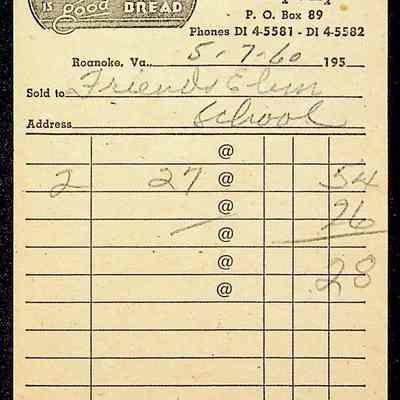 IS good BREAD
P. O. Box 89
Phones DI 4-5581 - DI 4-5582
Roanoke, Va., 5-7-60 195
Sold to Friends Elem
School
Address
@
2 27 @ 54
@ 26
@
@ .28